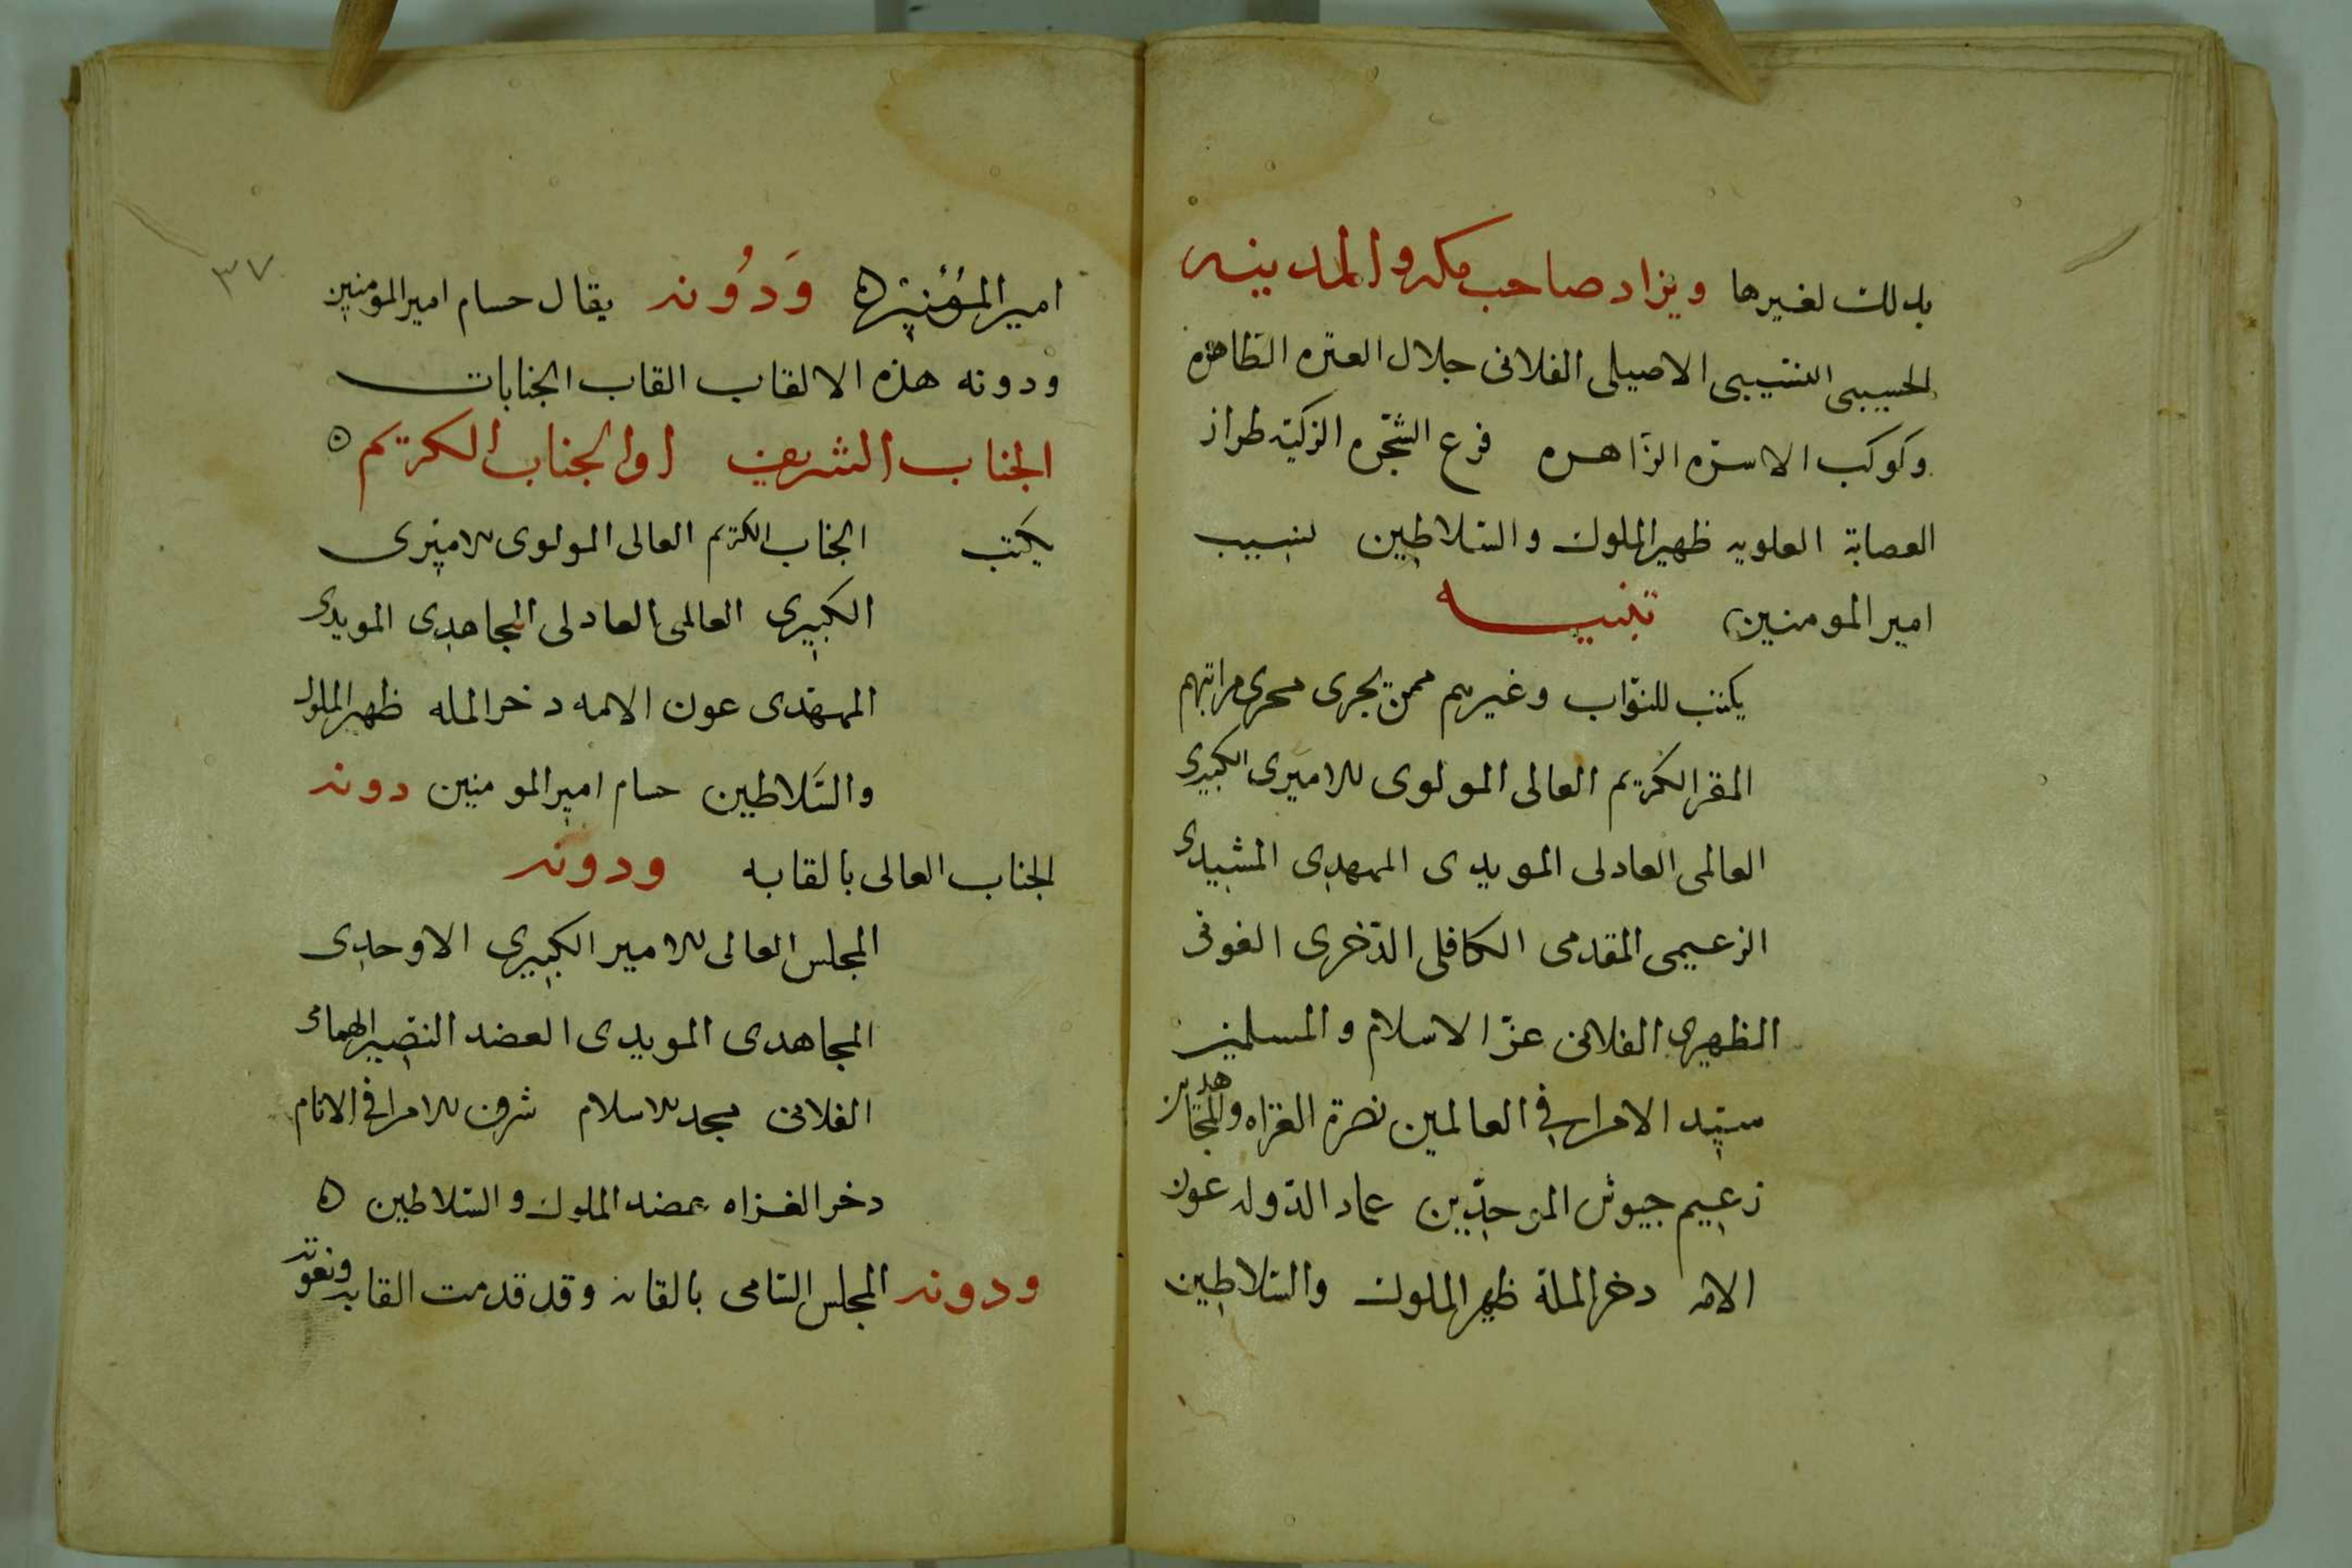 بذلك لغيرها ويزاد صاحب مكه والمدينه
الحسيبى النسيبى الاصيلى الفلانى جلال العتره الطاهره
وكوكب الاسرة الزاهره فرع الشجره الزكيه طراز
العصابة العلويه ظهير الملوك والسلاطين نسيب
امير المومنين تنبيه
يكتب للنواب وغيرهم ممن يجرى مجرى مراتبهم
المقر الكريم العالى المولوى الاميرى الكبيرى
العالمى العادلى المويدى الممهدى المشيدى
الزعيمى المقدمى الكافلى الذخرى الغوثى
الظهيرى الفلانى عز الاسلام والمسلمين
سيد الامرا فى العالمين نصرة الغزاه والمجاهدين
زعيم جيوش الموحدين عماد الدوله عون
الامه دخر الملة ظهير الملوك والسلاطين
٣٧
امير المؤمنين ودونه يقال حسام امير المومنين
ودونه هذه الالقاب القاب الجنابات
الجناب الشريف او الجناب الكريم
يكتب الجناب الكريم العالى المولوى الاميرى
الكبيرى العالمى العادلى المجاهدى المويدى
الممهدى عون الامه دخر المله ظهير الملوك
والسلاطين حسام امير المومنين دونه
الجناب العالى بالقابه ودونه
المجلس العالى الامير الكبيرى الاوحدى
المجاهدى المويدى العضد النصير الهمامى
الفلانى مجد الاسلام شرف الامرا فى الانام
دخر الغزاه عضد الملوك والسلاطين
ودونه المجلس السامى بالقابه وقد قدمت القابه ونعوته